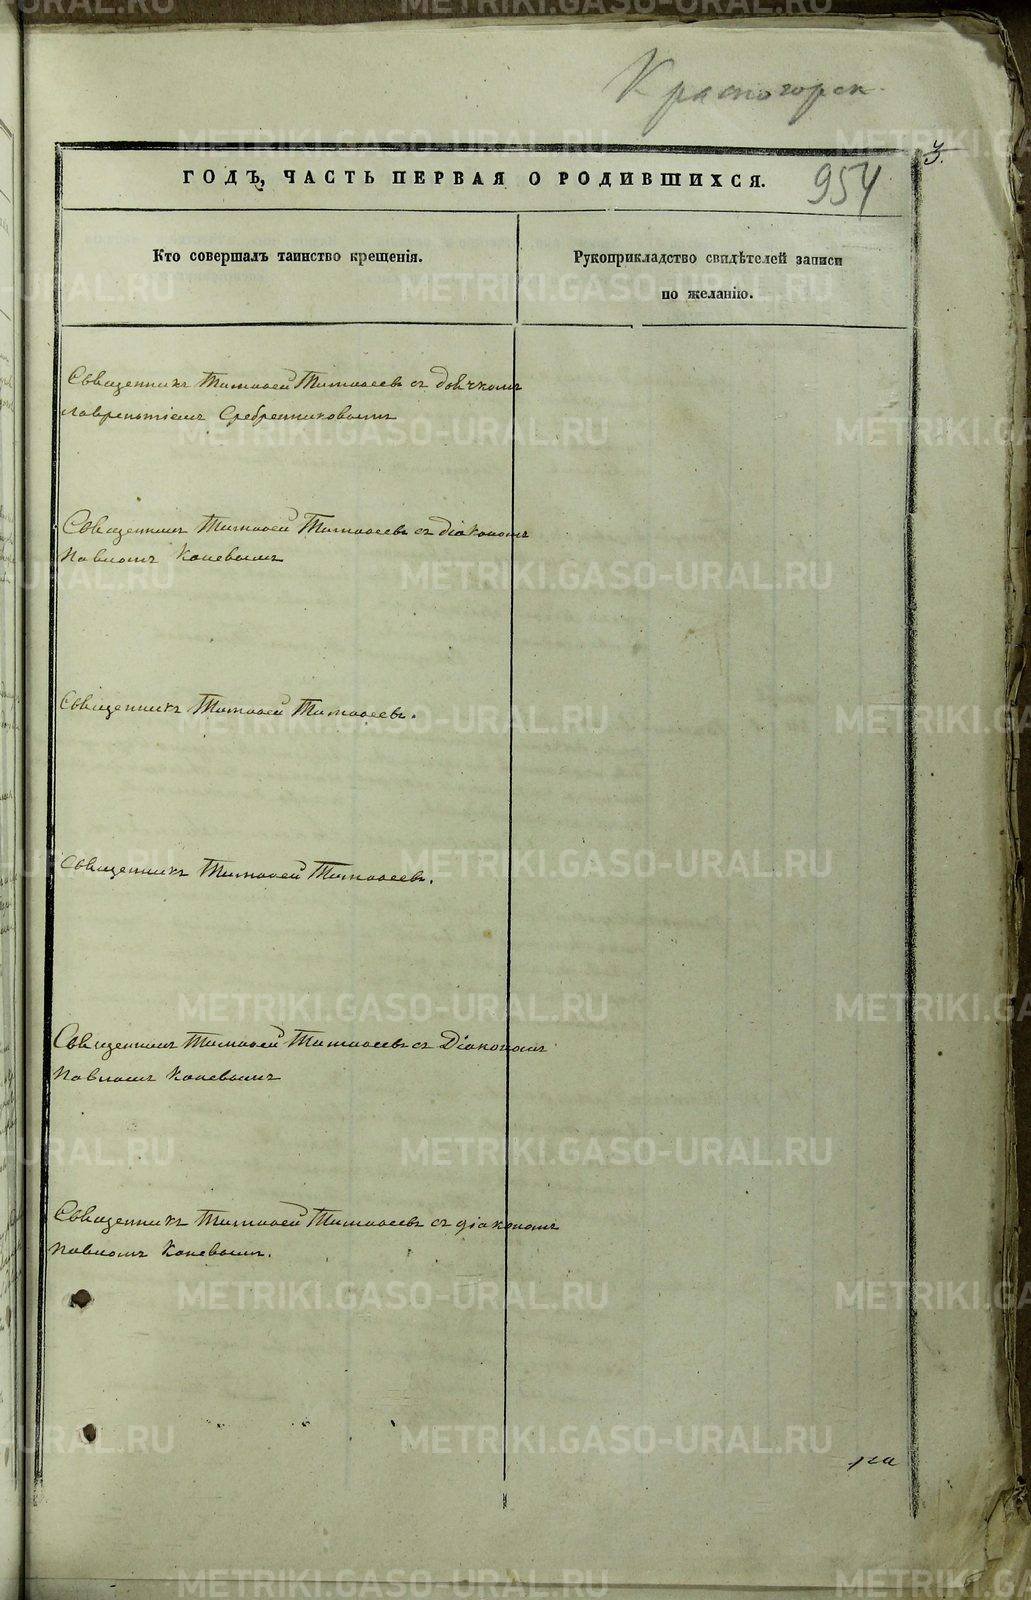 Красногорск.
3.
954
ГОДЪ, ЧАСТЬ ПЕРВАЯ О РОДИВШИХСЯ.
Кто совершалъ таинство крещенія.
Рукоприкладство свидѣтелей записи
по желанію.
Священникъ Тимофей Тимофеевъ съ дьячкомъ
Лаврентіемъ Сребренниковымъ
Священникъ Тимофей Тимофеевъ съ діакономъ
Павломъ Коневымъ
Священникъ Тимофей Тимофеевъ.
Священникъ Тимофей Тимофеевъ.
Священникъ Тимофей Тимофеевъ съ Діакономъ
Павломъ Коневымъ
Священникъ Тимофей Тимофеевъ съ діакономъ
Павломъ Коневымъ.
METRIKI.GASO-URAL.RU